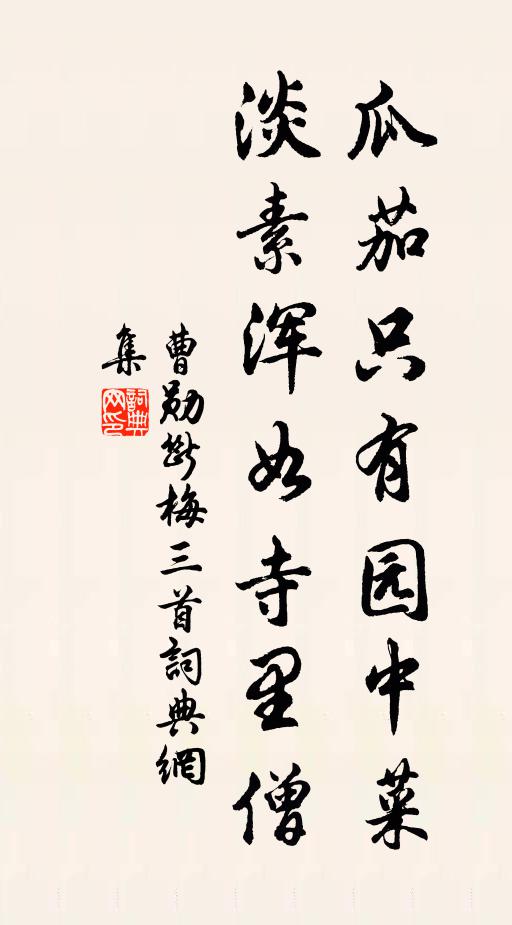 瓜茄只有园中菜
淡素浑如寺里僧
曹勋斷梅三首詞典網
集
詞典
网印